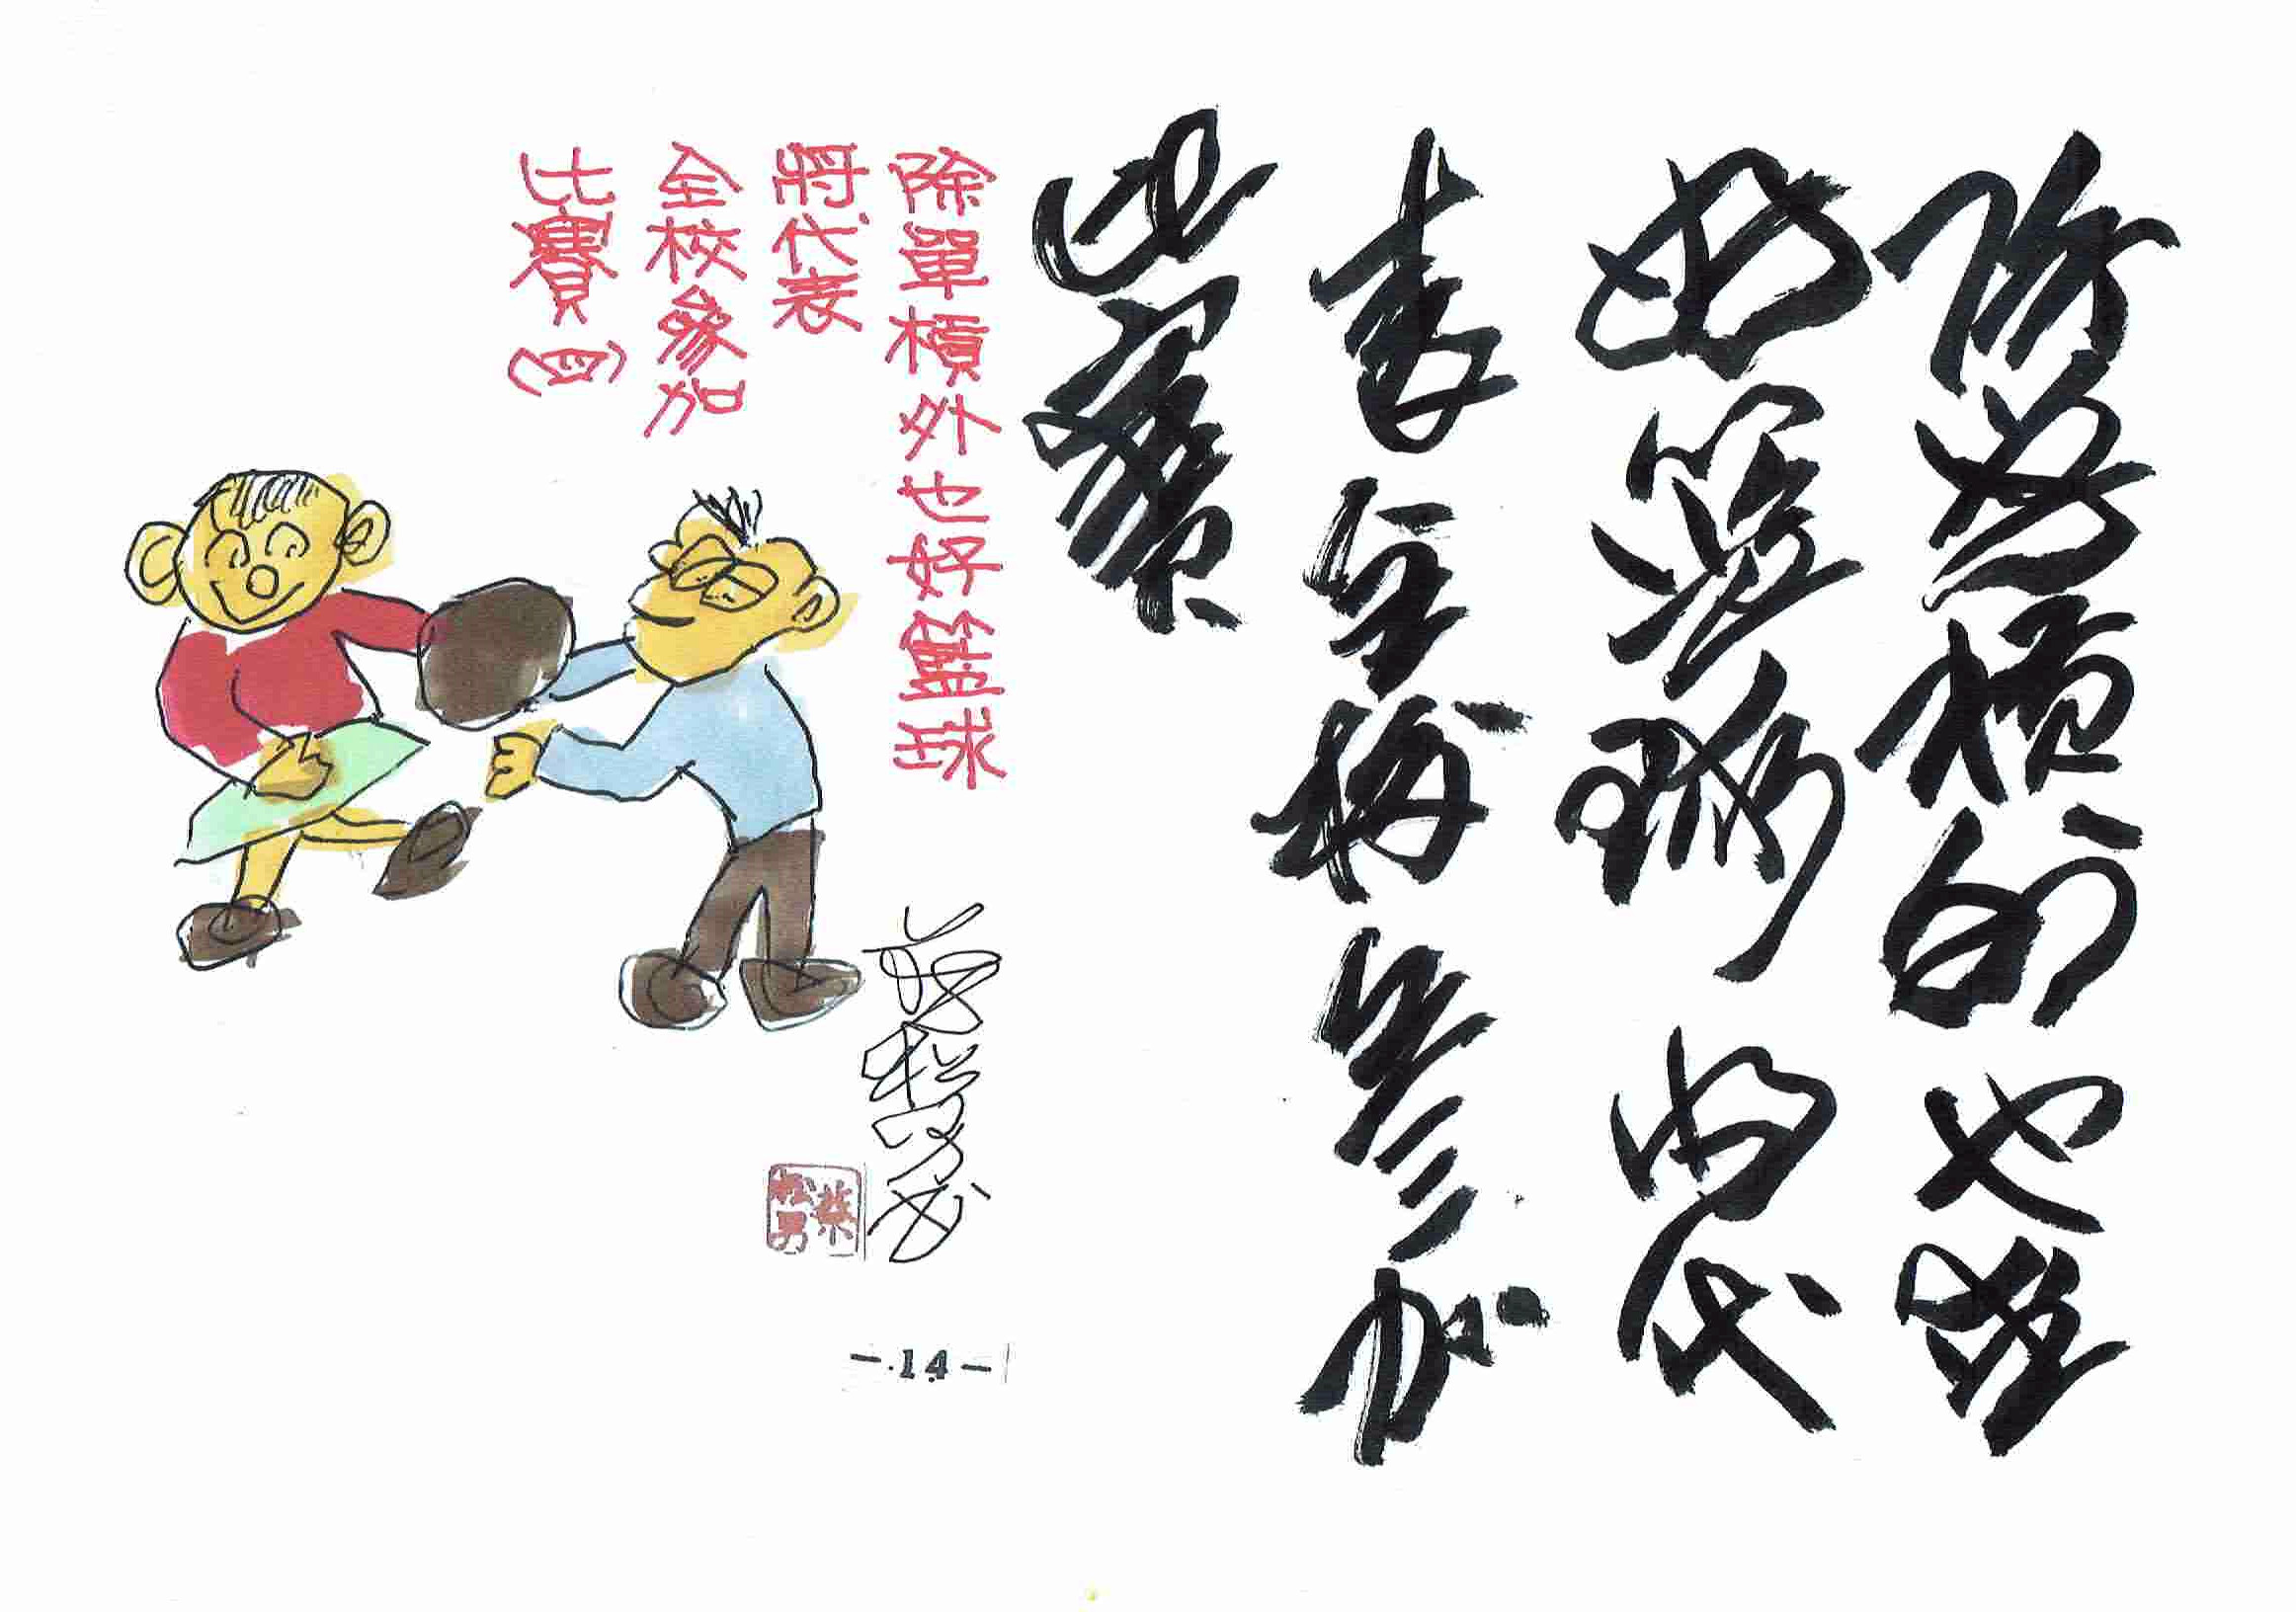 除單槓外也
好籃球將代
表全校參加
比賽
除單槓外也好籃球
將代表
全校參加
比賽(四)
蔡松男書
蔡松男
-14-